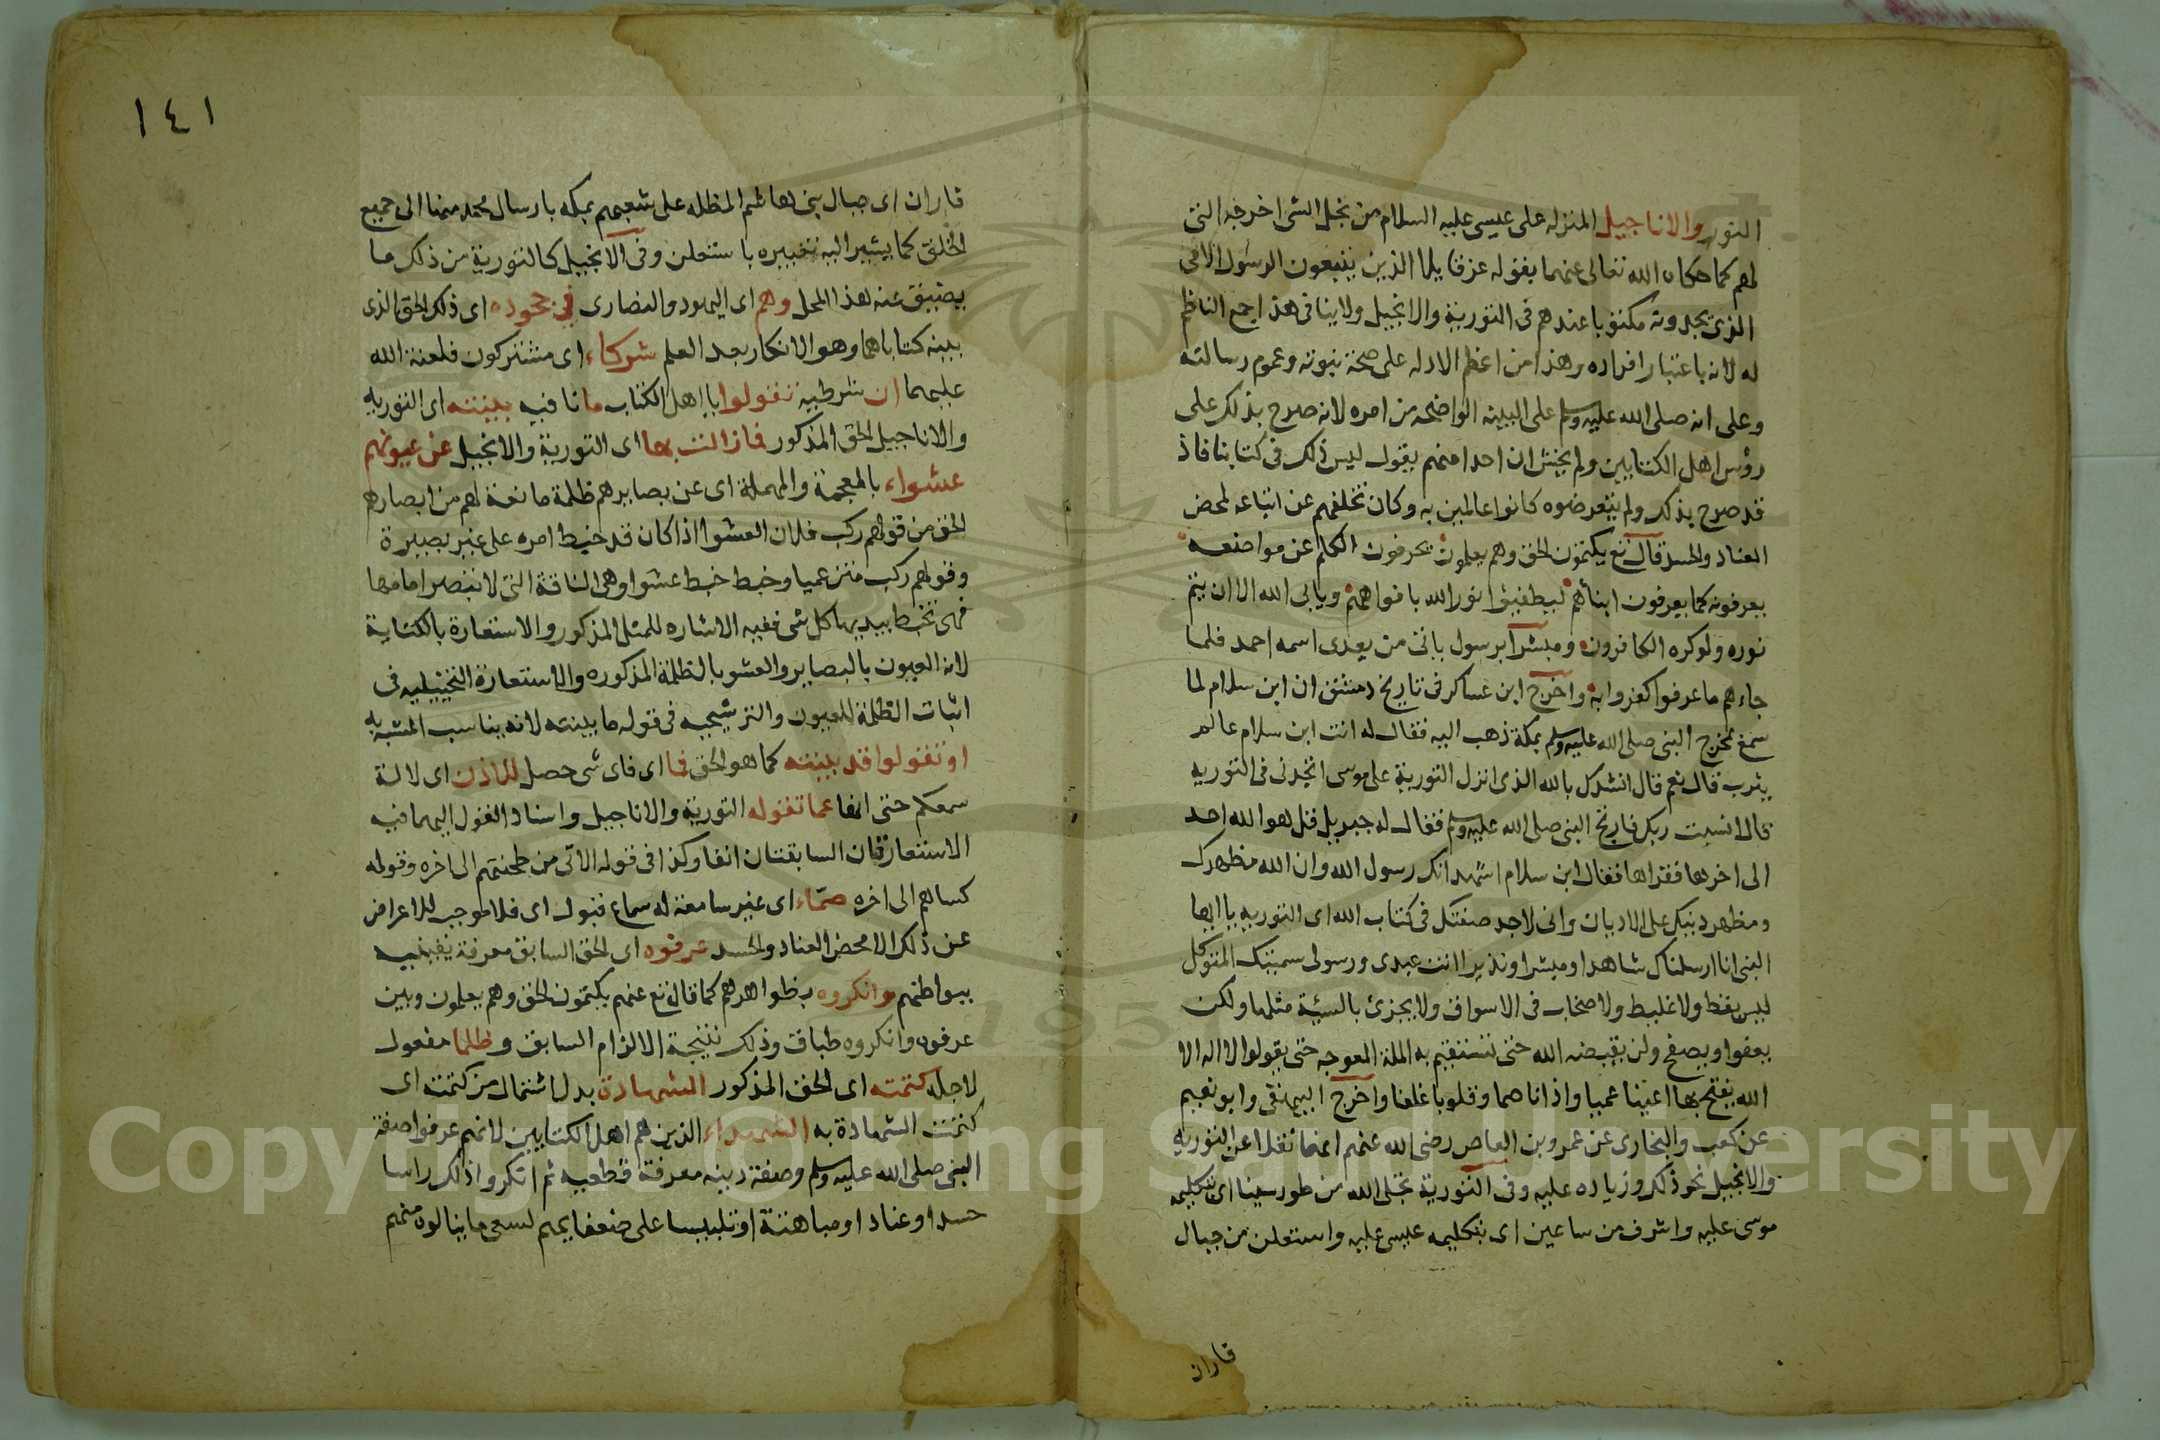 النور والاناجيل المنزله على عيسى عليه السلام من نجل الشى اخرجه التى
لهم كما حكاه الله تعالى عنهما بقوله عز قايلا الذين يتبعون الرسول الامى
الذى يجدونه مكتوبا عندهم فى التورية والانجيل ولا ينافى هذا جمع الناظم
له لانه باعتبار افراده وهذا من اعظم الادله على صحة نبوته وعموم رسالته
وعلى انه صلى الله عليه وسلم على البينة الواضحه من امره لانه صرح بذلك على
رؤس اهل الكتابين ولم يخش ان احدا منهم يقول ليس ذلك فى كتابنا فاذ
قد صرح بذلك ولم يتعرضوه كانوا عالمين به وكان تخلفهم عن اتباعه لمحض
العناد والحسد قال تع يكتمون الحق وهم يعلمون يحرفون الكلم عن مواضعه
يعرفونه كما يعرفون ابنائهم ليطفئوا نور الله بافواههم ويابى الله الا ان يتم
نوره ولو كره الكافرون ومبشرا برسول ياتى من بعدى اسمه احمد فلما
جاءهم ما عرفوا كفروا به واخرج ابن عساكر فى تاريخ دمشق ان ابن سلام لما
سمع بمخرج النبى صلى الله عليه وسلم بمكة ذهب اليه فقال له انت ابن سلام عالم
يثرب قال نعم قال انشدك بالله الذى انزل التورية على موسى اتجدنى فى التوريه
قال انسب ربك فارتج النبى صلى الله عليه وسلم فقال له جبريل قل هوا لله احد
الى اخرها فقراها فقال ابن سلام اشهد انك رسول الله وان الله مظهرك
ومظهر دينك على الاديان وانى لاجد صفتك فى كتاب الله اى التوريه يا ايها
النبى انا ارسلناك شاهدا ومبشرا ونذيرا انت عبدى ورسولى سميتك المتوكل
ليس بفظ ولا غليظ ولا صخاب فى الاسواق ولا يجزئ بالسيئة مثلها ولكن
يعفوا ويصفح ولن يقبضه الله حتى تستقيم به الملة المعوجه حتى يقولوا لا اله الا
الله يفتح بها اعينا عميا واذانا صما وقلوبا غلفا واخرج البيهقى وابو نعيم
عن كعب والبخارى عن عمرو بن العاص رضى الله عنهم انهما نقلا عن التوريه
والانجيل نحو ذلك وزياده عليه وفى التورية تجلى الله من طور سينا اى بتكليمه
موسى عليه واشرف من ساعين اى بتكليمه عيسى عليه واستعلن من جبال
فاران
١٤١
فاران اى جبال بنى هاشم المظله على شعبهم بمكه بارسال محمد منها الى جميع
الخلق كما يشير اليه تعبيره باستعلن وفى الانجيل كالتورية من ذلك ما
يضيق عنه هذا المحل وهم اى اليهود والنصارى فى جحوده اى ذلك الحق الذى
بينه كتاباهما وهو الانكار بعد العلم شركاء اى مشتركون فلعنة الله
عليهما ان شرطيه تقولوا يا اهل الكتاب ما نافيه بينته اى التوريه
والاناجيل الحق المذكور فما زالت بها اى التورية والانجيل عن عيونهم
عشواء بالمعجمة والمهملة اى عن بصايرهم ظلمة مانعة لهم من ابصارهم
الحق من قولهم ركب فلان العشوا اذا كان قد خبط امره على غير بصيرة
وقولهم ركب متن عميا وخبط خبط عشوا وهى الناقة التى لا تبصر امامها
فهى تخبط بيديها كل شى ففيه الاشاره للمثل المذكور والاستعارة بالكناية
لانه العيون بالبصاير والعشو بالظلمة المذكوره والاستعارة التخييليه فى
اثبات الظلمة للعيون والترشيحيه فى قوله ما بينته لانه يناسب المشبه به
او تقولوا قد بينته كما هو الحق فما اى فاى شى حصل للاذن اى لالة
سمعكم حتى انها عما تقوله التورية والاناجيل واسناد القول اليهما فيه
الاستعارتان السابقتان انفا وكذا فى قوله الاتى من طحنتهم الى اخره وقوله
كساهم الى اخره صماء اى غير سامعة له سماع قبول اى فلا موجب للاعراض
عن ذلك الا محض العناد والحسد عرفوه اى الحق السابق معرفة يقينيه
ببواطنهم وانكروه بظواهرهم كما قال تع عنهم يكتمون الحق وهم يعلمون وبين
عرفوه وانكروه طباق وذلك نتيجة الالزام السابق وظلما مفعول
لاجله كتمته اى الحق المذكور الشهادة بدل اشتمال من كتمته اى
كتمت الشهادة به الشهداء الذين هم اهل الكتابين لانهم عرفوا صفة
النبى صلى الله عليه وسلم وصفة دينه معرفة قطعيه ثم انكروا ذلك راسا
حسدا وعنادا ومباهتة او تلبيسا على ضعفايهم لسعى ما ينالوه منهم
Copyright © King Saud University
1957